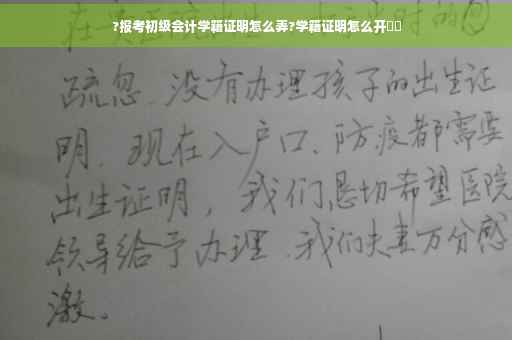 ?报考初级会计学藉证明怎么弄?学藉证明怎么开
在
时的
疏忽、没有办理孩子的出生证
明、现在入户口、防疫都需要
出生证明，我们恳切希望医院
领导给予办理、我们夫妻万分感
激。